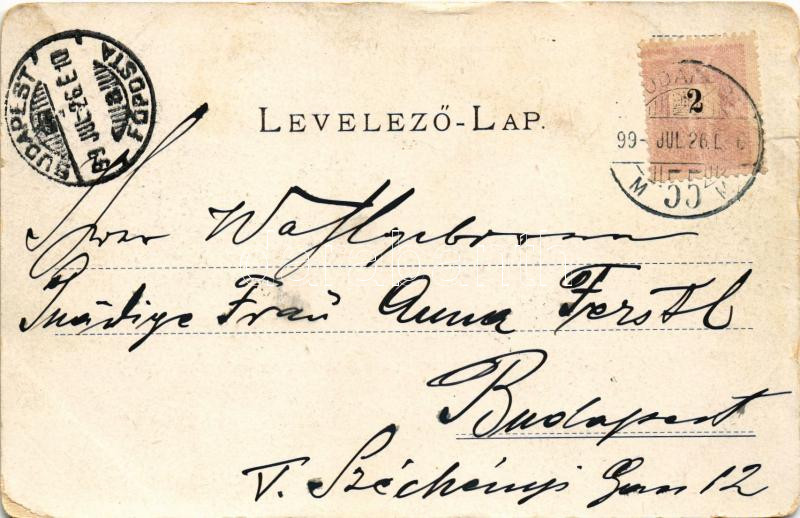 BUDAPEST
99 JUL. 26. E 10
FŐPOSTA
LEVELEZŐ-LAP.
2
99- JUL. 26. E. 6
55
Ihrer Wohlgeboren
Gnädige Frau Anna Ferstl
Budapest
V. Széchényi Gasse 12